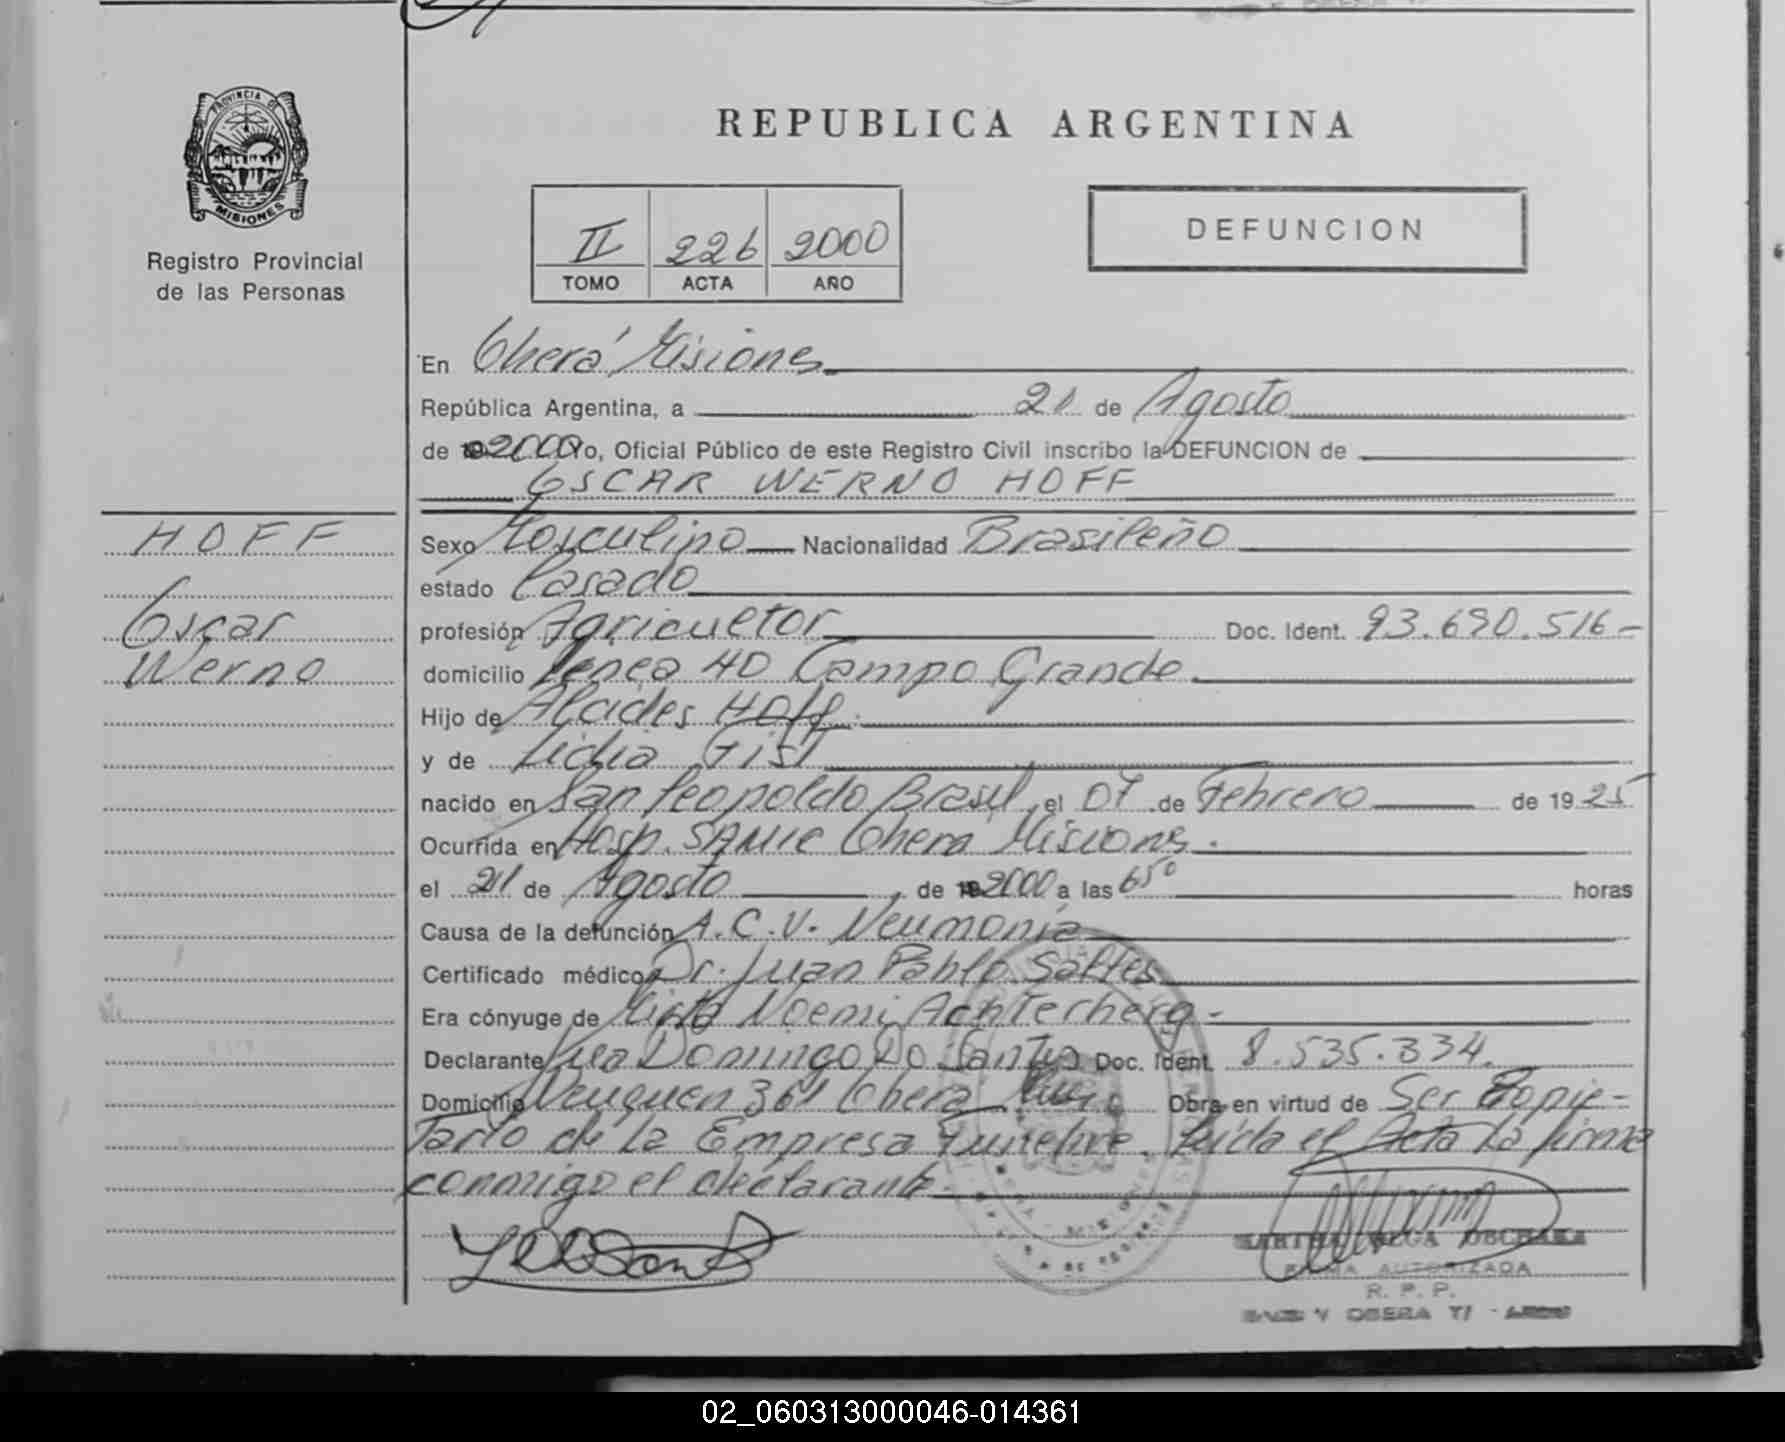 PROVINCIA DE
MISIONES
Registro Provincial
de las Personas
REPUBLICA ARGENTINA
II 226 2000
TOMO ACTA AÑO
DEFUNCION
En Oberá Misiones
República Argentina, a 21 de Agosto
de 2000 Yo, Oficial Público de este Registro Civil inscribo la DEFUNCION de
OSCAR WERNO HOFF
HOFF
Oscar
Werno
Sexo Masculino Nacionalidad Brasileño
estado Casado
profesión Agricultor Doc. Ident. 93.690.516-
domicilio Linea 40 Campo Grande
Hijo de Alcides Hoff
y de Lidia
nacido en San Leopoldo Brasil, el 07 de Febrero de 1925
Ocurrida en Hosp. SAMIC Oberá Misiones.
el 21 de Agosto, de 2000 a las 650 horas
Causa de la defunción A.C.V. Neumonia
Certificado médico Dr. Juan Pablo
Era cónyuge de Mirta Noemi Achterberg-
Declarante Domingo Do Santos Doc. Ident. 8.535.334.
Domicilio Neuquen 361 Obera Obra en virtud de Ser Propie-
tario de la Empresa Funebre. Leída el Acta la firma
conmigo el declarante.
FIRMA AUTORIZADA
R. P. P.
02_060313000046-014361